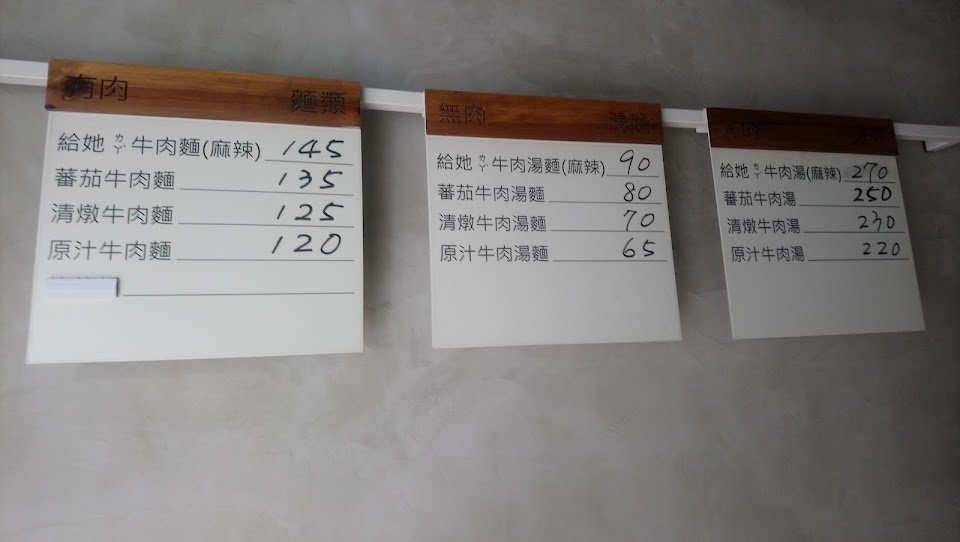 有肉 麵類
給她ㄎㄚ牛肉麵(麻辣) 145
蕃茄牛肉麵 135
清燉牛肉麵 125
原汁牛肉麵 120
無肉 湯麵
給她ㄎㄚ牛肉湯麵(麻辣) 90
蕃茄牛肉湯麵 80
清燉牛肉湯麵 70
原汁牛肉湯麵 65
給她ㄎㄚ牛肉湯(麻辣) 270
蕃茄牛肉湯 250
清燉牛肉湯 230
原汁牛肉湯 220